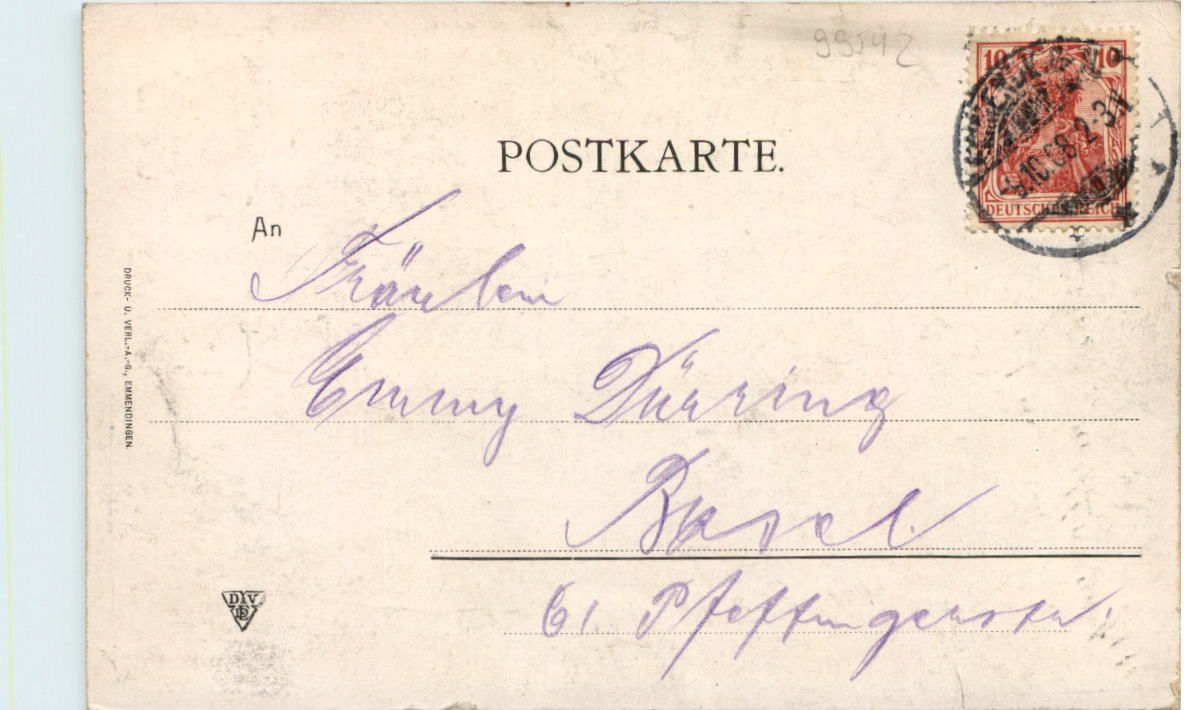 99542
POSTKARTE.
10 10
9.10.08.2-3N
DEUTSCHES REICH
An
Fräulein
Emmy Dürring
Basel
61. Pfeffingerstr.
DRUCK- U. VERL.-A.-G., EMMENDINGEN.
DVE